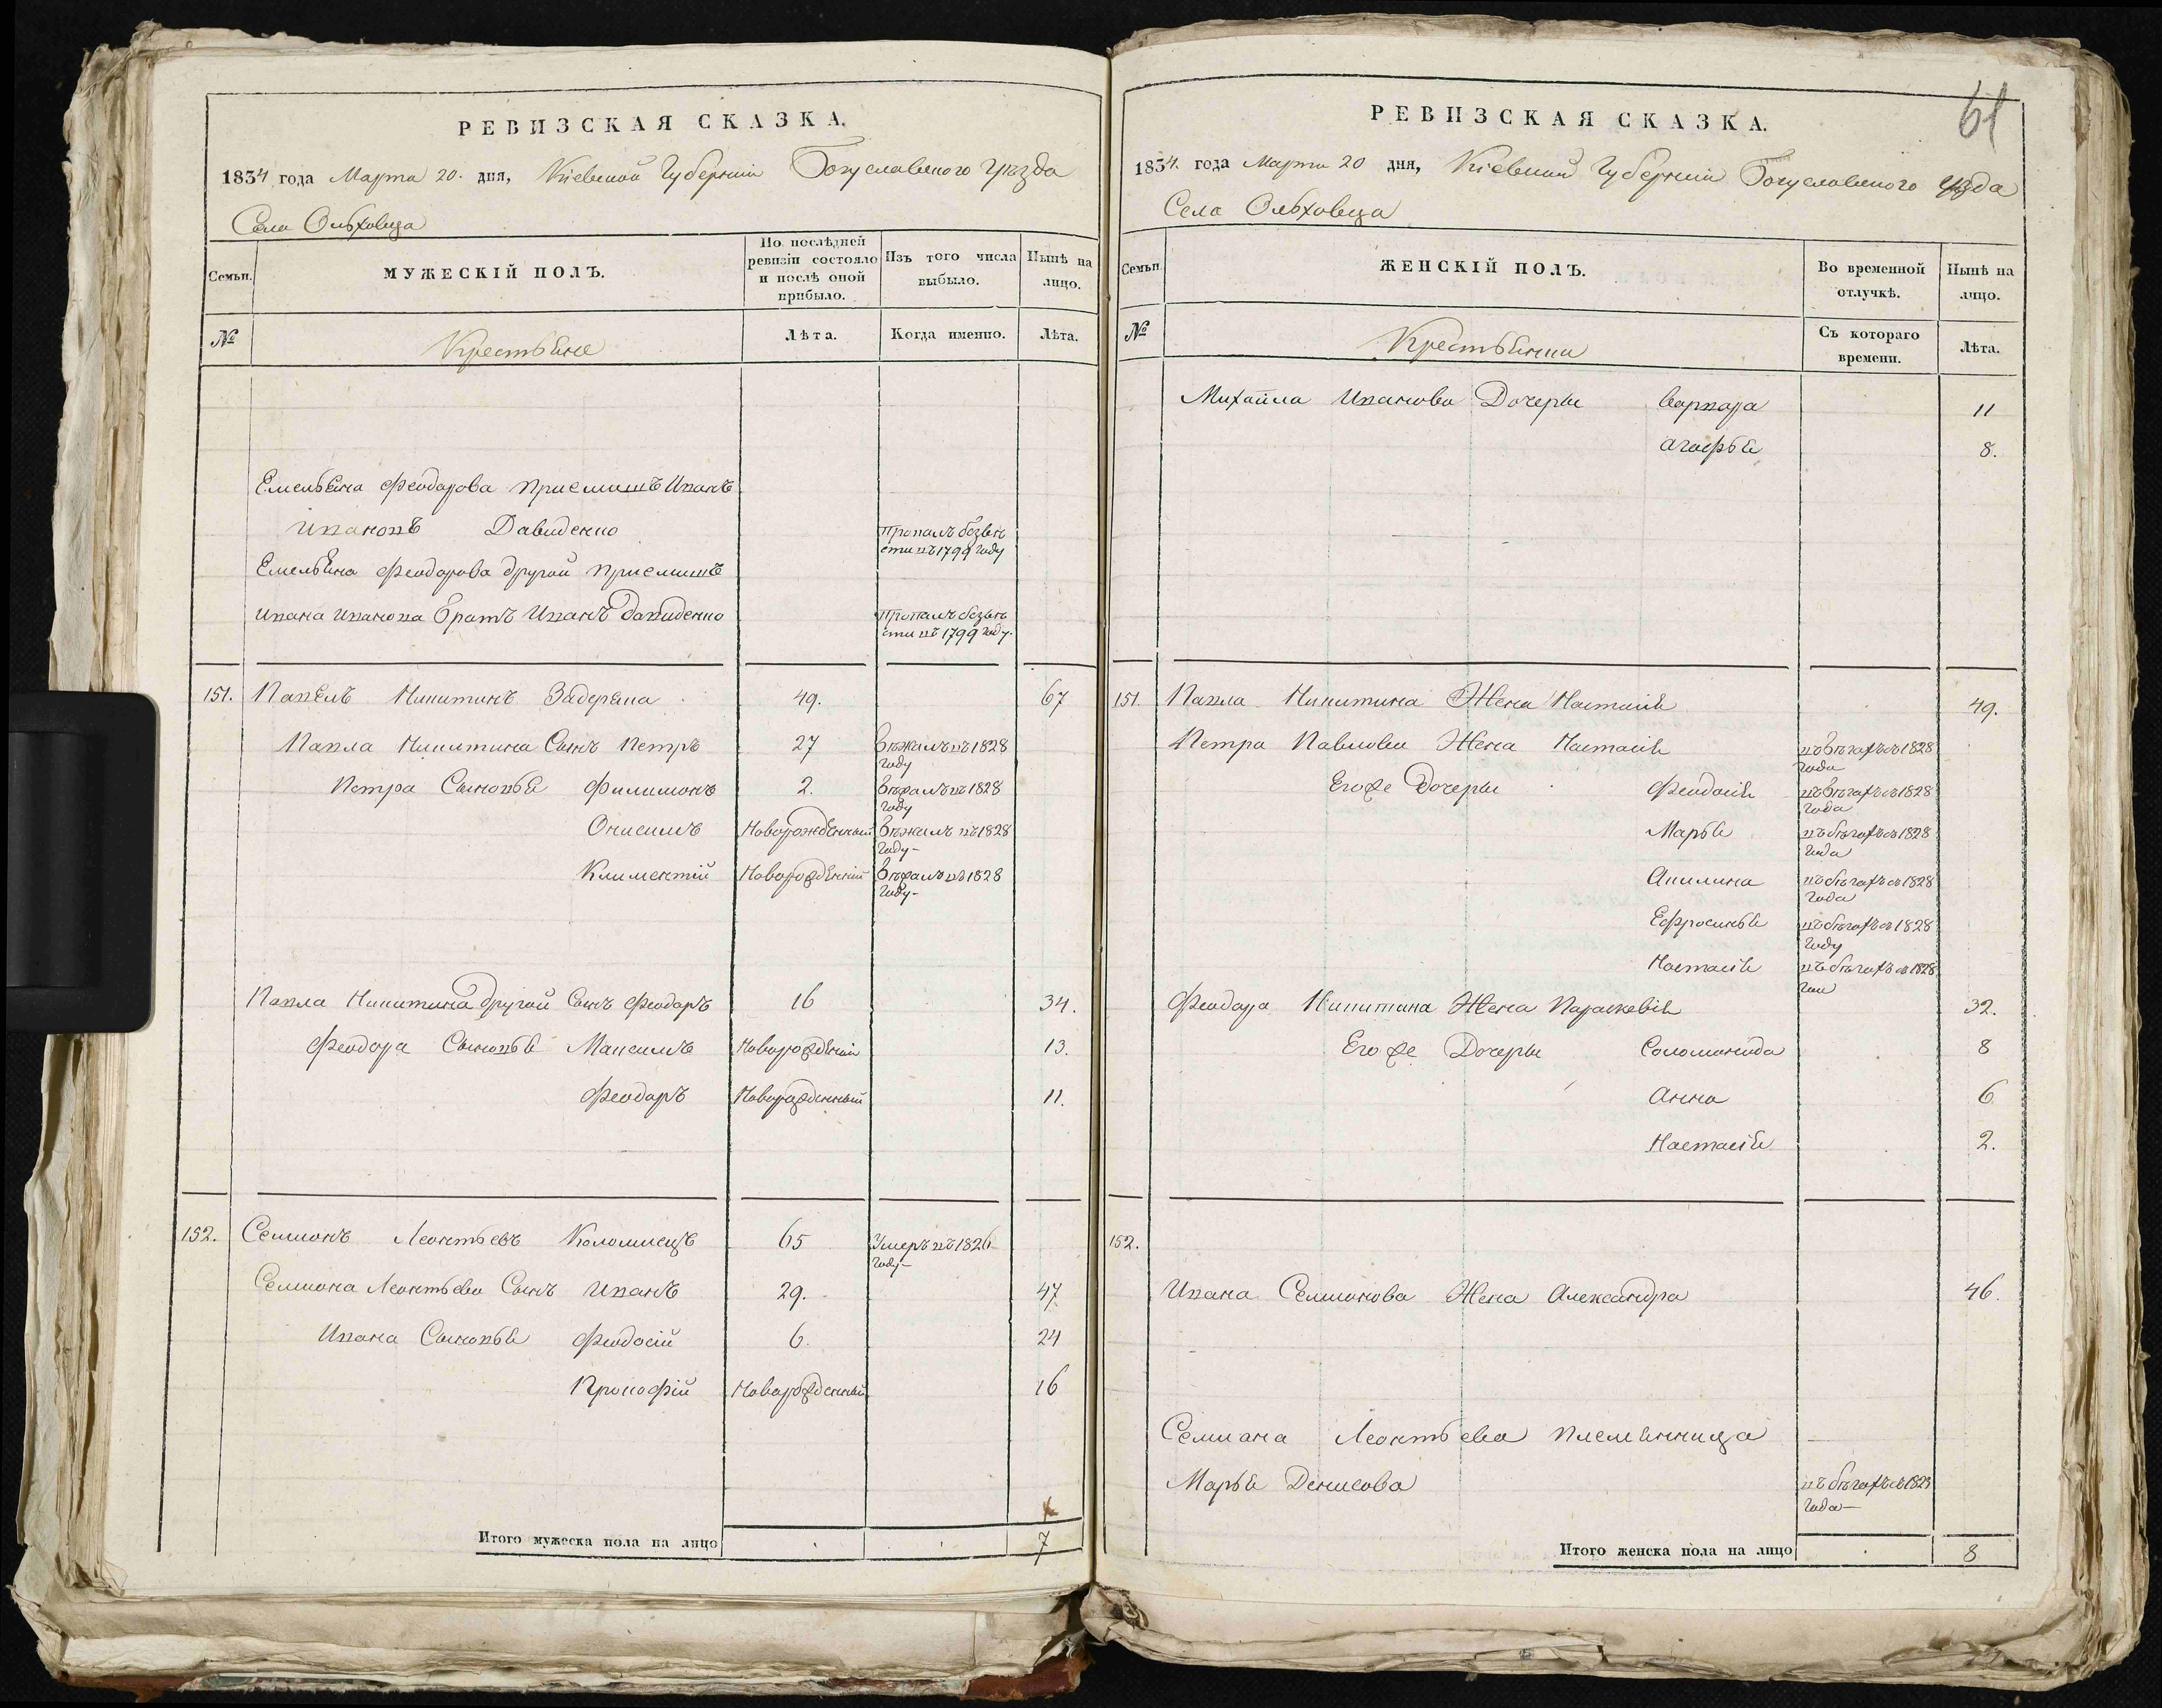 РЕВИЗСКАЯ СКАЗКА.
1834 года Марта 20. дня, Кіевской Губерніи Богуславского Уѣзда
Села Ольховца
Семьи.
МУЖЕСКІЙ ПОЛЪ.
По послѣдней ревизіи состояло и послѣ оной прибыло.
Изъ того числа выбыло.
Нынѣ на лицо.
№
Крестьяне
Лѣта.
Когда именно.
Лѣта.
Емельяна Феодорова приемышъ Иванъ
Ивановъ Давиденко Пропалъ безвѣсти въ 1799 году
Емельяна Феодорова другой приемышъ
Ивана Иванова братъ Иванъ Давиденко Пропалъ безвѣсти въ 1799 году.
151. Павелъ Никитинъ Задерака 49. 67
Павла Никитина Сынъ Петръ 27 бѣжалъ въ 1828 году
Петра Сыновья Филимонъ 2. бѣжалъ въ 1828 году
Онисимъ Новорожденный бѣжалъ въ 1828 году-
Климентій Новорожденній бѣжалъ въ 1828 году-
Павла Никитина другой Сынъ Феодоръ 16 34.
Феодора Сыновья Максимъ Новорожденній 13.
Феодоръ Новорожденный 11.
152. Семионъ Леонтьевъ Коломиецъ 65 Умеръ въ 1826 году-
Семиона Леонтьева Сынъ Иванъ 29. 47
Ивана Сыновья Феодосій 6. 24
Прокофій Новорожденный 16
Итого мужеска пола на лицо 7
61
РЕВИЗСКАЯ СКАЗКА.
1834. года Марта 20 дня, Кіевской Губерніи Богуславского Уѣзда
Села Ольховца
Семьи
ЖЕНСКІЙ ПОЛЪ.
Во временной отлучкѣ.
Нынѣ на лицо.
№
Крестьянки
Съ котораго времени.
Лѣта.
Михайла Иванова Дочеры Варвара 11
Агафья 8.
151. Павла Никитина Жена Настасія 49.
Петра Павлова Жена Настасія въ бѣгахъ съ 1828 года
Его же Дочеры Феодосія въ бѣгахъ съ 1828 года
Марья въ бѣгахъ съ 1828 года
Акилина въ бѣгахъ съ 1828 года
Ефросинья въ бѣгахъ съ 1828 году
Настасія въ бѣгахъ съ 1828
Феодора Никитина Жена Параскевія 32.
Его же Дочеры Соломонида 8
Анна 6
Настасія 2.
152.
Ивана Семионова Жена Александра 46.
Семиона Леонтьева племянница
Марья Денисова въ бѣгахъ съ года-
Итого женска пола на лицо 8